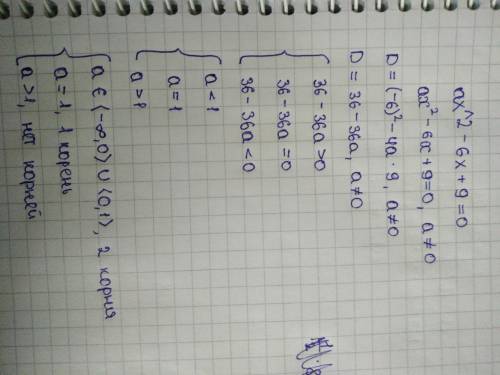 ax^2 - 6x + 9 = 0
ax² - 6x + 9 = 0, a ≠ 0
D = (-6)² - 4a · 9, a ≠ 0
D = 36 - 36a, a ≠ 0
{ 36 - 36a > 0
36 - 36a = 0
36 - 36a < 0
{ a < 1
a = 1
a > 1
{ a ∈ (-∞, 0) ∪ (0, 1), 2 корня
a = 1, 1 корень
a > 1, нет корней